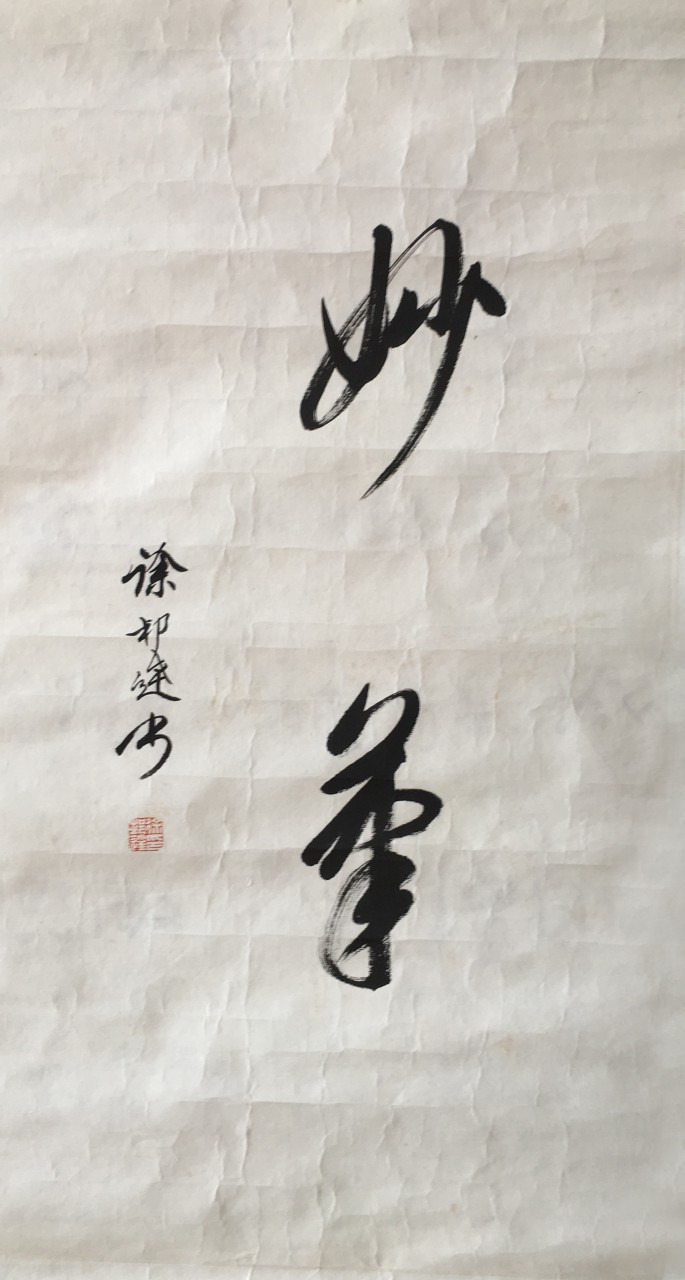 妙筆
徐邦達書